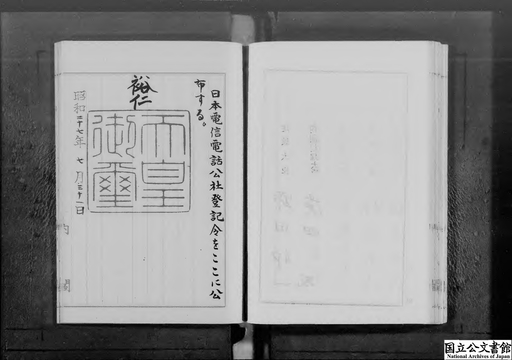 日本電信電話公社登記令をここに公
布する。
裕仁
天皇
御璽
昭和二十七年七月三十一日
内閣
国立公文書館
National Archives of Japan